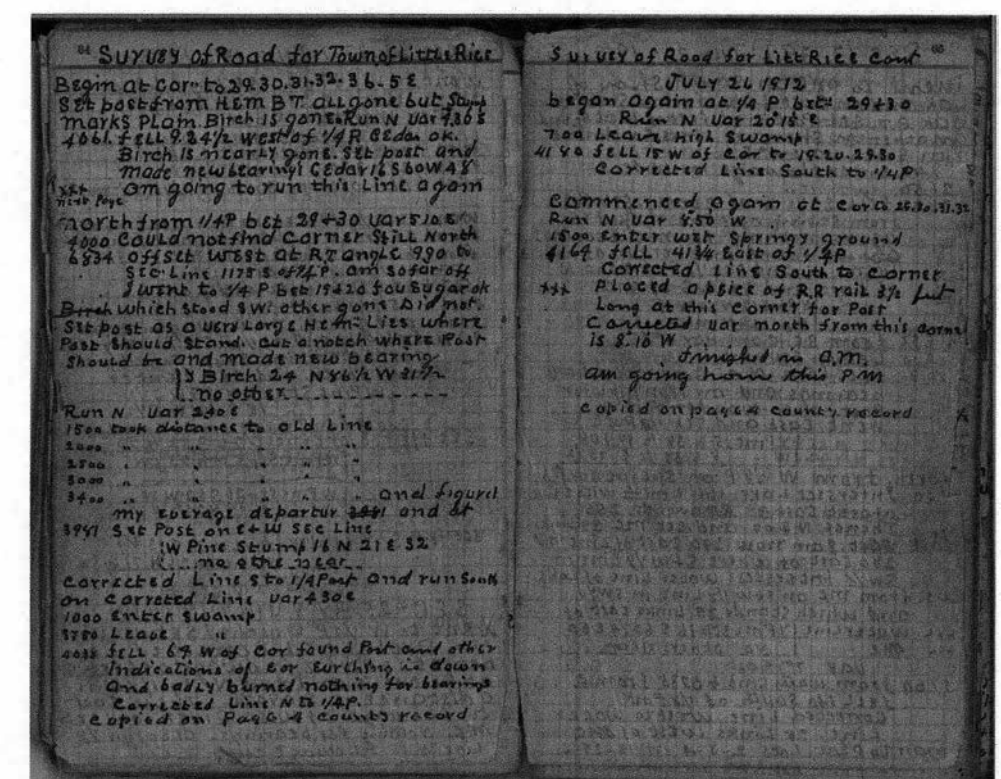 64 Survey of Road for Town of Little Rice
Begin at Cor to 29.30.31.32. 36. 5 E
Set post from Hem B T. all gone but Stump
marks Plain. Birch is gone. Run N Var 4 30 E
4061. fell 9.24½ West of ¼ P. Cedar ok.
Birch is nearly gone. Set post and
made new bearing Cedar 16 S 60 W 48
xxx am going to run this Line again
next Page
north from ¼ P bet 29+30 Var 5 10 E
4000 Could not find Corner Still North
6834 offset West at Rt angle 990 to
Sec. Line 1178 S of ¼ P. am so far off
I went to ¼ P bet 19+20 fou Sugar ok
Birch which stood S.W. other gone Did not
Set post as a very Large Hem- Lies where
Post should stand. Cut a notch where Post
should be and made new bearing
Birch 24 N 86½ W 31½
no other
Run N Var 2 30 E
1500 took distance to old Line
2000 " " " " "
2500 " " " " "
3000 " " " " "
3400 " " " " " and figured
my everage departur 3981 and at
3981 Set Post on E+W Sec Line
W Pine Stump 16 N 21 E 32
no othe near
Corrected Line S to ¼ Post and run South
on Correted Line Var 4 30 E
1000 Enter Swamp
3780 Leave "
4038 fell 64 W of Cor found Post and other
Indications of Cor Eurthing is down
and badly burned nothing for bearings
Corrected Line N to ¼ P.
Copied on Page 4 County record
Survey of Road for Litt Rice Cont 65
JULY 26 1912
began again at ¼ P bet 29+30
Run N Var 20 15 E
700 Leave high Swamp
4180 fell 15 W of Cor to 19.20.29.30
Corrected Line South to ¼ P.
Commenced again at Cor to 29.30.31.32
Run N Var 8.50 W
1500 Enter wet Springy ground
4164 fell 41¾ East of ¼ P
Corrected Line South to Corner
xxx Placed a peice of R.R rail 3½ feet
Long at this Corner for Post
Corrected Var north from this Corner
is 8.10 W
finished in A.M.
am going home this P M
Copied on page 4 County record